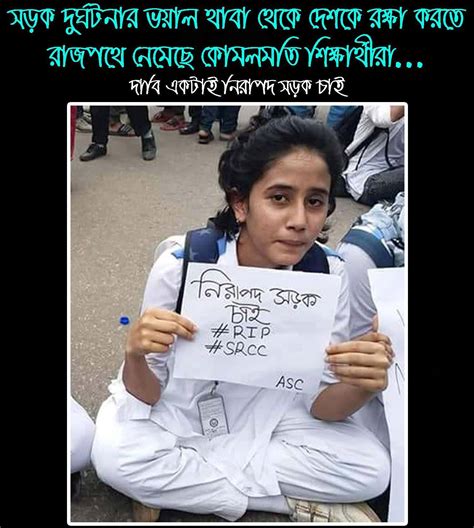 সড়ক দুর্ঘটনার ভয়াল থাবা থেকে দেশকে রক্ষা করতে
রাজপথে নেমেছে কোমলমতি শিক্ষার্থীরা...
দাবি একটাই নিরাপদ সড়ক চাই
নিরাপদ সড়ক
চাই
#RIP
#SRCC
ASC